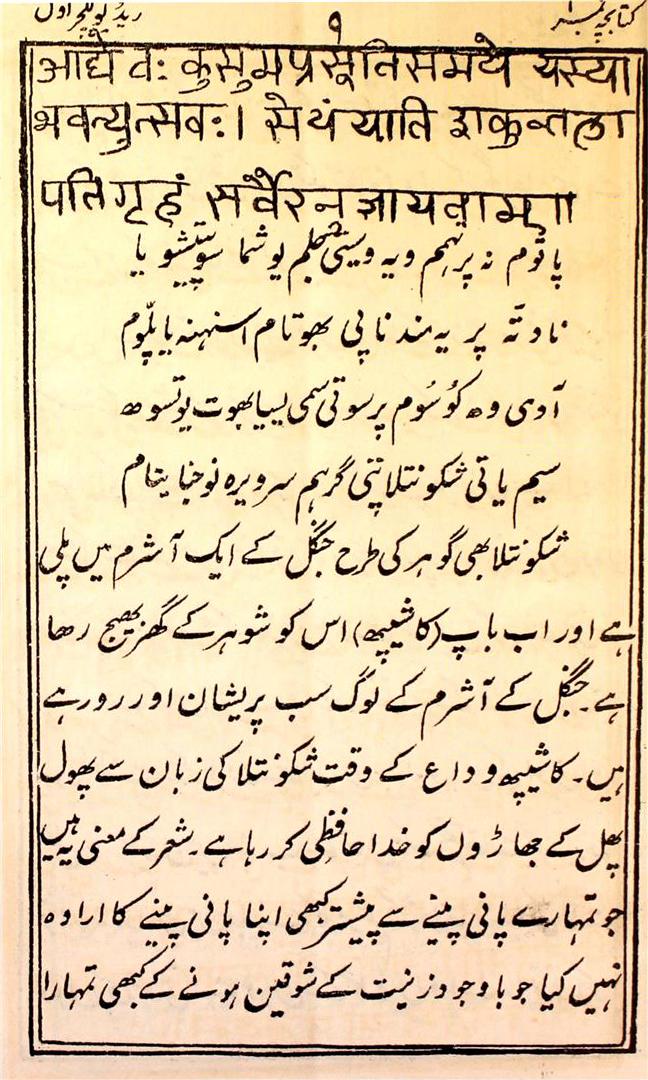 کتابچہ نمبر ۱ ۹ ریڈیو لکچر اول
आद्ये वः कुसुमप्रसूतिसमये यस्या
भवत्युत्सवः। सेयं याति शकुन्तला
पतिगृहं सर्वैरनुज्ञायताम्॥
پاتوم نہ پرتھم ویہ وسیتی جلم یوشما سوپیتشو یا
نادتّہ پر یہ مند ناپی بھوتام اسنہنہ یا پلّوم
آدی وھ کُوسُوم پرسوتی سمی یسیا بھوت یوتسوھ
سیم یاتی شکونتلا پتی گرہم سرویرہ نوجنا یتام
شکونتلا بھی گوہر کی طرح جنگل کے ایک آشرم میں پلی
ہے اور اب باپ (کاشیپھ) اس کو شوہر کے گھر بھیج رھا
ہے۔ جنگل کے آشرم کے لوگ سب پریشان اور رو رہے
ہیں۔ کاشیپھ وداع کے وقت شکونتلا کی زبان سے پھول
پھل کے جھاڑوں کو خدا حافظی کر رہا ہے۔ شعر کے معنی یہ ہیں
جو تمہارے پانی پینے سے پیشتر کبھی اپنا پانی پینے کا ارادہ
نہیں کیا جو باوجود زینت کے شوقین ہونے کے کبھی تمہارا